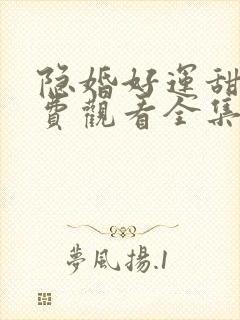 隐婚好運甜
費觀看全集
夢風揚.1